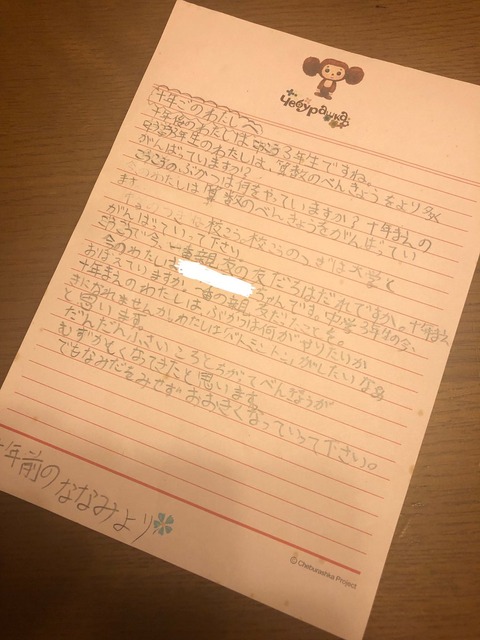 Чебурашка
十年ごのわたしへ
十年後のわたしは、こうこう3年生ですね。
年生のわたしは、算数のべんきょうをより多く
がんばっていますか?
こうこうのぶかつは何をやっていますか?十年まえの
わたしは算数のべんきょうをがんばってい
ます
校 校 つぎは大学
がんばっていって下さい。
こうこうで今、一番親友の友だちはだれですか。十年まえ
今のわたしは ちゃんです。中学3年生の今、
おぼえていますか、一番の親友だったことを。
十年まえのわたしは、ぶかつは何がやりたいか
きたがしたいなあ
と思います。
だんだん小さいころとちがってべんきょうが
むずかしくなってきたと思います。
でもなみだをみせずおおきくなっていって下さい。
十年前のななみより
© Cheburashka Project